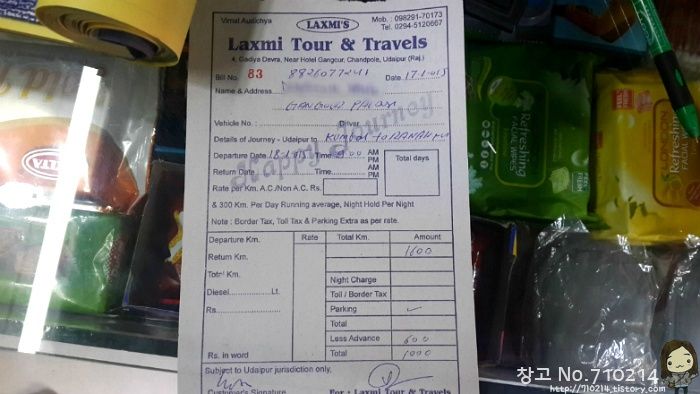 Vimal Audichya
LAXMI'S
Mob. : 098291-70173
Tel. 0294-5120667
Laxmi Tour & Travels
4, Gadiya Devra, Near Hotel Gangour, Chandpole, Udaipur (Raj.)
Bill No. 83 8826077241 Date 17.1.015
Name & Address
Vehicle No. : Driver
Happy Journey
Details of Journey - Udaipur to
Departure Date 18.1.015 Time AM
PM
Return Date : Time AM
PM
Total days
Rate per Km. A.C./Non A.C. Rs.
& 300 Km. Per Day Running average, Night Hold Per Night
Note : Border Tax, Toll Tax & Parking Extra as per rate.
Departure Km. Rate Total Km. Amount
Return Km. 1600
Total Km.
Night Charge
Diesel Lt. Toll / Border Tax
Rs. Parking ✓
Total
Less Advance 600
Rs. in word Total 1000
Subject to Udaipur jurisdiction only,
Customer's Signature For : Laxmi Tour & Travels
Refreshing
FACIAL WIPES
Refreshing
창고 No.710214
http://710214.tistory.com